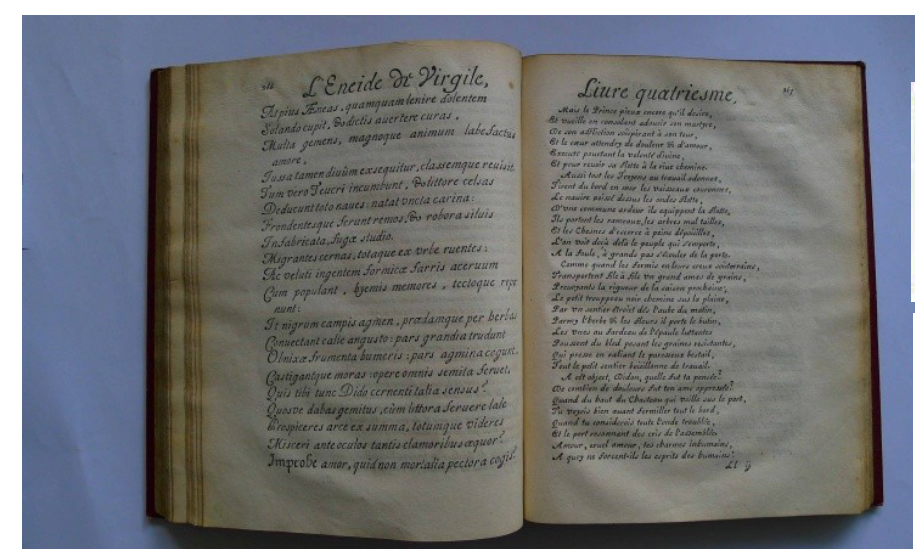 L'Eneide de Virgile,
At pius Æneas, quamquam lenire dolentem
Solando cupit, & dictis auertere curas,
Multa gemens, magnoque animum labefactus
amore,
Iussa tamen diuûm exsequitur, classemque reuisit.
Tum vero Teucri incumbunt, & littore celsas
Deducunt toto naues: natat vncta carina:
Frondentesque ferunt remos, & robora siluis
Infabricata, fugæ studio.
Migrantes cernas, totaque ex vrbe ruentes:
Ac veluti ingentem formicæ farris aceruum
Cum populant, hyemis memores, tectoque repo
nunt:
It nigrum campis agmen, prædamque per herbas
Conuectant calle angusto: pars grandia trudunt
Obnixæ frumenta humeris: pars agmina cogunt,
Castigantque moras: opere omnis semita feruet,
Quis tibi tunc Dido cernenti talia sensus?
Quosve dabas gemitus, cùm littora feruere late
Prospiceres arce ex summa, totumque videres
Misceri ante oculos tantis clamoribus æquor?
Improbe amor, quid non mortalia pectora cogis?
Liure quatriesme,
Mais le Prince pieux encore qu'il desire,
Et vueille en consolant adoucir son martyre,
De son affliction soûpirant à son tour,
Et le cœur attendry de douleur & d'amour,
Execute pourtant la volonté divine,
Et pour revoir sa flotte à la rive chemine.
Aussi tost les Troyens au travail adonnez,
Tirent du bord en mer les vaisseaux couronnez,
Le navire poissé dessus les ondes flotte,
D'vne commune ardeur ils equippent la flotte,
Ils portent les rameaux, les arbres mal taillez,
Et les Chesnes d'escorce à peine dépoüillez,
L'on voit decà delà le peuple qui s'emporte,
A la foule, à grands pas s'écouler de la porte.
Comme quand les formis en leurs creux soûterrains,
Transportent file à file vn grand amas de grains,
Prevoyants la rigueur de la saison prochaine,
Le petit trouppeau noir chemine sur la plaine,
Par vn sentier étroit dés l'aube du matin,
Parmy l'herbe & les fleurs il porte le butin,
Les vnes au fardeau de l'épaule luttantes
Poussent du bled pesant les graines resistantes,
Qui presse en ralliant le paresseux bestail,
Tout le petit sentier boüillonne de travail.
A cét object, Didon, quelle fut ta pensée?
De combien de douleurs fut ton ame oppressée?
Quand du haut du Chasteau qui veille sur le port,
Tu voyois bien avant formiller tout le bord,
Quand tu considerois toute l'onde troublée,
Et le port resonnant des cris de l'assemblée
Amour, cruel amour, tes charmes inhumains,
A quoy ne forcent-ils les esprits des humains?
Ll ij